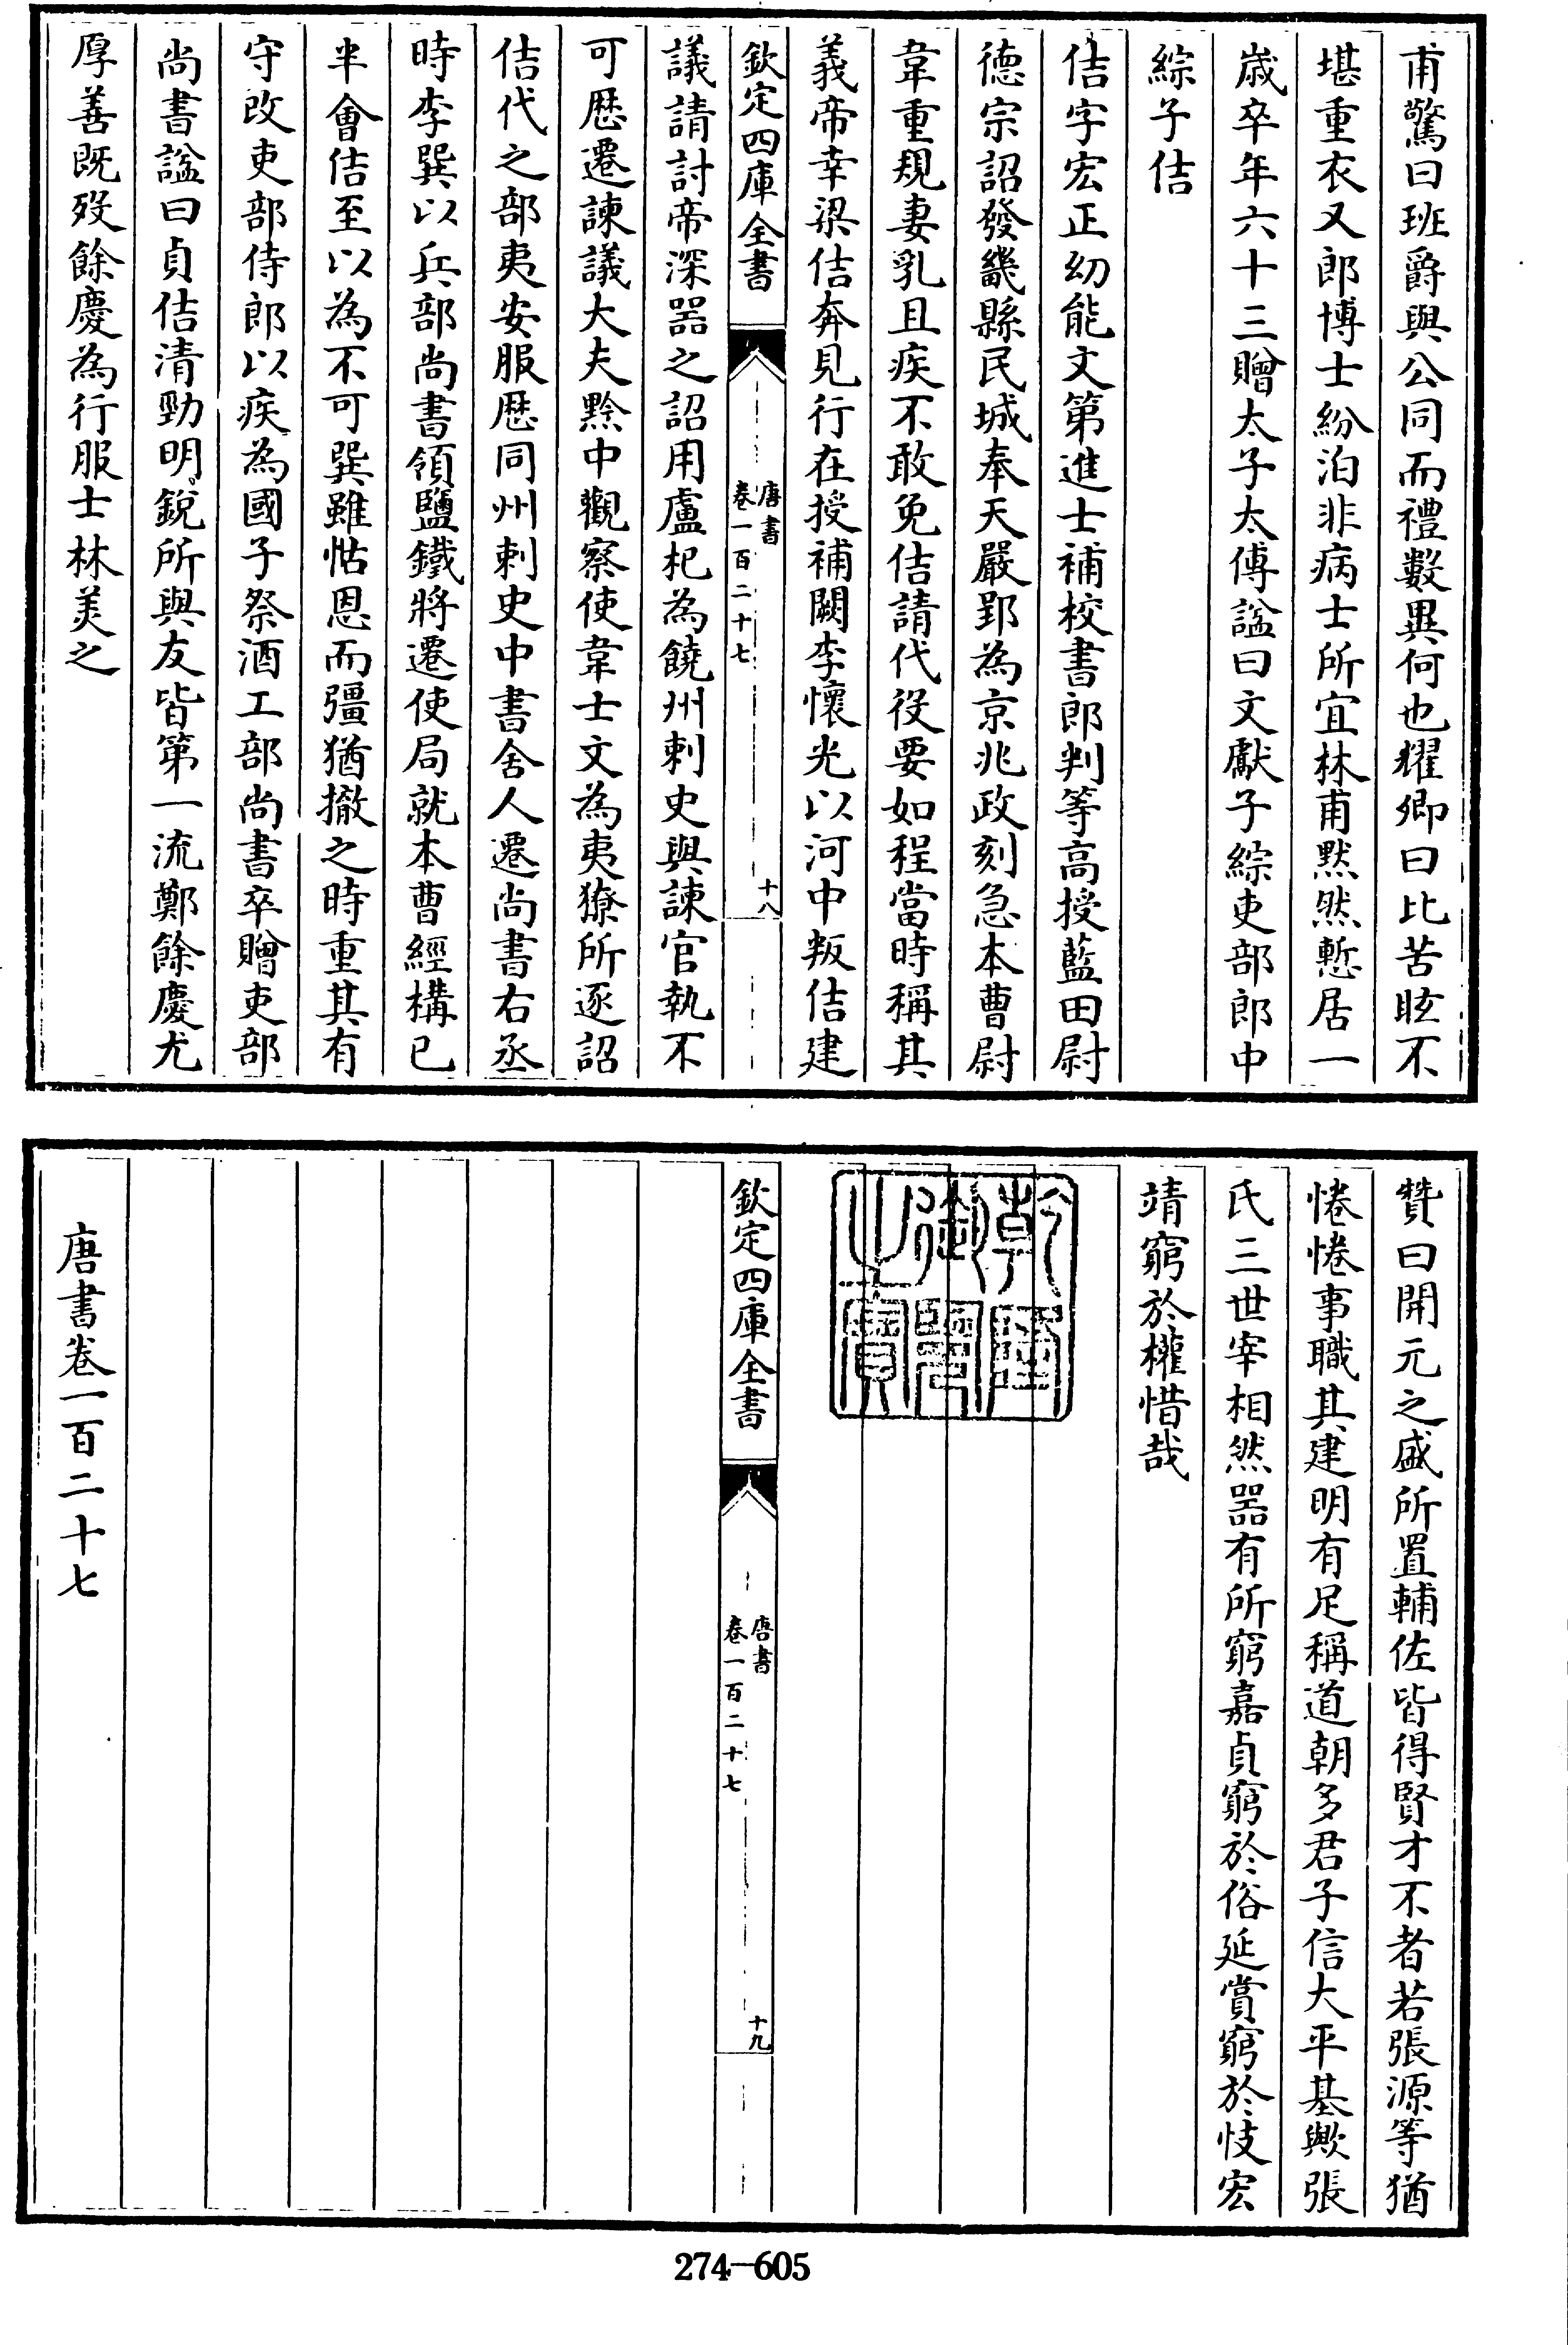 甫驚曰班爵與公同而禮數異何也耀卿曰比苦眩不
堪重衣又郎博士紛泊非病士所宜林甫默然慙居一
歲卒年六十三贈太子太傅諡曰文獻子綜吏部郎中
綜子佶
佶字宏正幼能文第進士補校書郎判等高授藍田尉
德宗詔發畿縣民城奉天嚴郢為京兆政刻急本曹尉
韋重規妻乳且疾不敢免佶請代役要如程當時稱其
義帝幸梁佶奔見行在授補闕李懷光以河中叛佶建
欽定四庫全書
唐書
卷一百二十七
十八
議請討帝深器之詔用盧杞為饒州刺史與諫官執不
可歷遷諫議大夫黔中觀察使韋士文為夷獠所逐詔
佶代之部夷安服歷同州刺史中書舍人遷尚書右丞
時李巽以兵部尚書領鹽鐵將遷使局就本曹經構已
半會佶至以為不可巽雖怙恩而彊猶撤之時重其有
守改吏部侍郎以疾為國子祭酒工部尚書卒贈吏部
尚書諡曰貞佶清勁明銳所與友皆第一流鄭餘慶尤
厚善既歿餘慶為行服士林美之
贊曰開元之盛所置輔佐皆得賢才不者若張源等猶
惓惓事職其建明有足稱道朝多君子信大平基歟張
氏三世宰相然器有所窮嘉貞窮於俗延賞窮於忮宏
靖窮於權惜哉
乾隆御覽之寶
欽定四庫全書
唐書
卷一百二十七
十九
唐書卷一百二十七
274-605